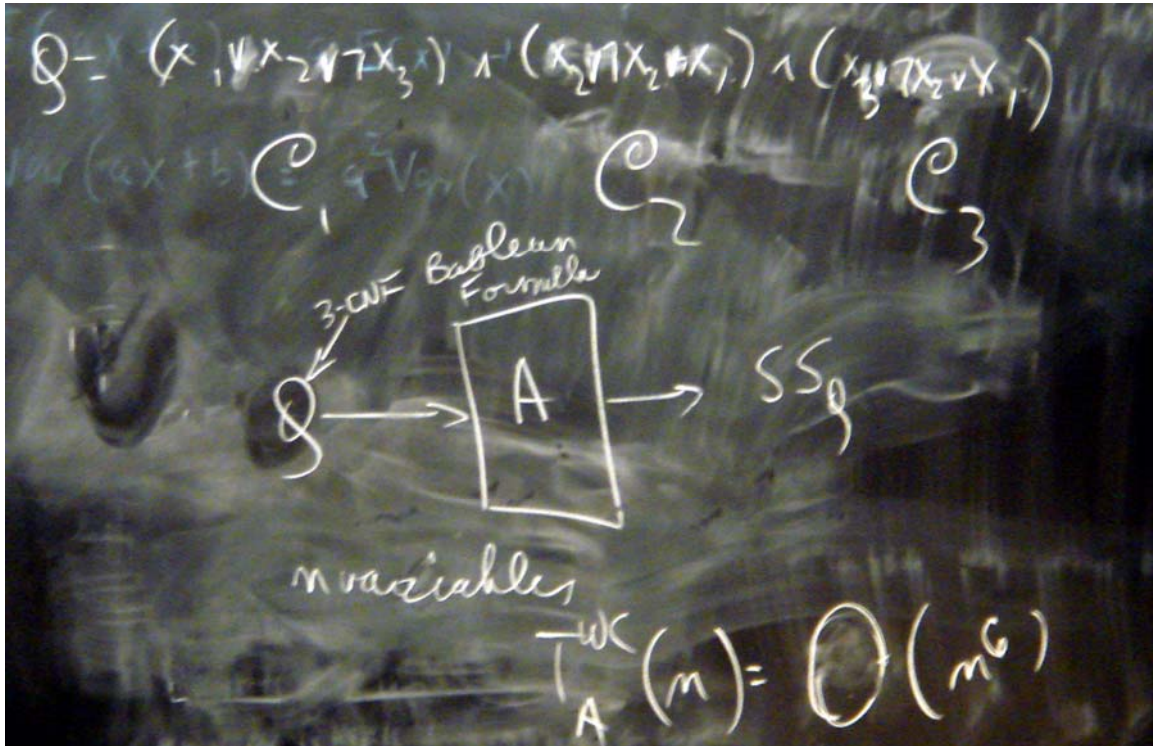 φ = (x₁ ∨ x₂ ∨ ¬x₃) ∧ (x₂ ∨ ¬x₂ ∨ x₁) ∧ (x₃ ∨ ¬x₂ ∨ x₁)
Var(ax+b) = a²Var(x)
C₁ C₂ C₃
3-CNF Boolean
Formula
φ → A → SS_φ
n variables
T_A^WC (n) = O(n⁶)